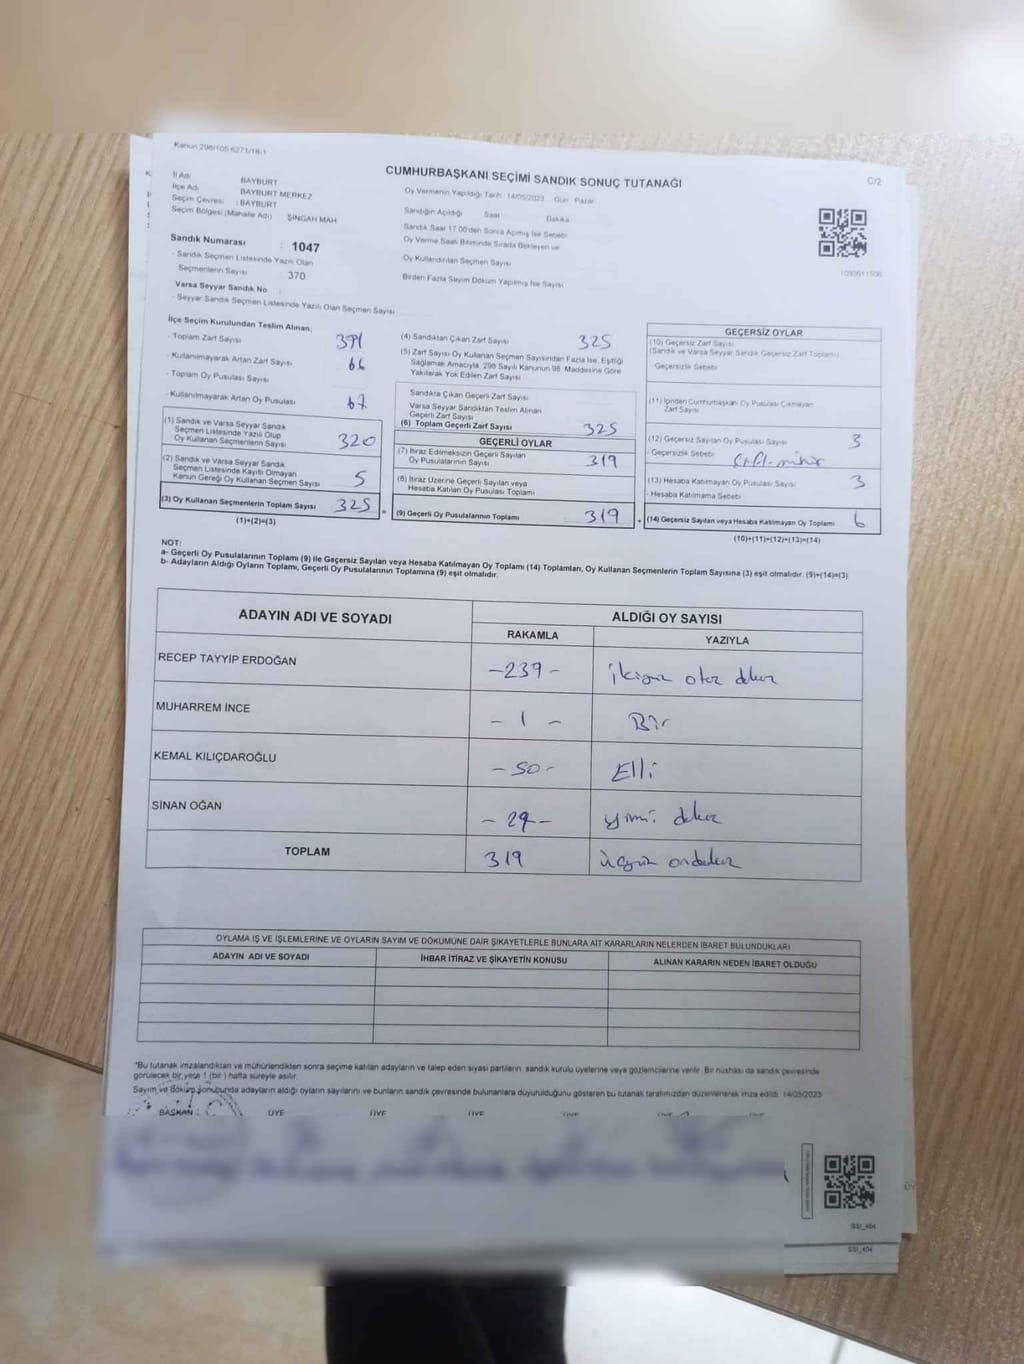 Kanun 298/105 6271/18-1
CUMHURBAŞKANI SEÇİMİ SANDIK SONUÇ TUTANAĞI
C/2
İl Adı BAYBURT
İlçe Adı BAYBURT MERKEZ
Seçim Çevresi : BAYBURT
Seçim Bölgesi (Mahalle Adı) ŞİNGAH MAH
Sandık Numarası : 1047
- Sandık Seçmen Listesinde Yazılı Olan
Seçmenlerin Sayısı 370
Varsa Seyyar Sandık No
- Seyyar Sandık Seçmen Listesinde Yazılı Olan Seçmen Sayısı
Oy Vermenin Yapıldığı Tarih 14/05/2023 Gün Pazar
Sandığın Açıldığı Saat Dakika
Sandık Saat 17.00'den Sonra Açılmış İse Sebebi
Oy Verme Saati Bitiminde Sırada Bekleyen ve
Oy Kullandırılan Seçmen Sayısı
Birden Fazla Sayım Döküm Yapılmış İse Sayısı
1093611506
İlçe Seçim Kurulundan Teslim Alınan;
- Toplam Zarf Sayısı 391
- Kullanılmayarak Artan Zarf Sayısı 66
- Toplam Oy Pusulası Sayısı
- Kullanılmayarak Artan Oy Pusulası 67
(1) Sandık ve Varsa Seyyar Sandık
Seçmen Listesinde Yazılı Olup
Oy Kullanan Seçmenlerin Sayısı 320
(2) Sandık ve Varsa Seyyar Sandık
Seçmen Listesinde Kayıtlı Olmayan
Kanun Gereği Oy Kullanan Seçmen Sayısı 5
(3) Oy Kullanan Seçmenlerin Toplam Sayısı 325 =
(1)+(2)=(3)
(4) Sandıktan Çıkan Zarf Sayısı 325
(5) Zarf Sayısı Oy Kullanan Seçmen Sayısından Fazla İse, Eşitliği
Sağlamak Amacıyla, 298 Sayılı Kanunun 98. Maddesine Göre
Yakılarak Yok Edilen Zarf Sayısı
Sandıkta Çıkan Geçerli Zarf Sayısı
Varsa Seyyar Sandıktan Teslim Alınan
Geçerli Zarf Sayısı
(6) Toplam Geçerli Zarf Sayısı 325
GEÇERLİ OYLAR
(7) İtiraz Edilmeksizin Geçerli Sayılan
Oy Pusulalarının Sayısı 319
(8) İtiraz Üzerine Geçerli Sayılan veya
Hesaba Katılan Oy Pusulası Toplamı
(9) Geçerli Oy Pusulalarının Toplamı 319 +
GEÇERSİZ OYLAR
(10) Geçersiz Zarf Sayısı
(Sandık ve Varsa Seyyar Sandık Geçersiz Zarf Toplamı)
- Geçersizlik Sebebi
(11) İçinden Cumhurbaşkanı Oy Pusulası Çıkmayan
Zarf Sayısı
(12) Geçersiz Sayılan Oy Pusulası Sayısı 3
- Geçersizlik Sebebi
(13) Hesaba Katılmayan Oy Pusulası Sayısı 3
- Hesaba Katılmama Sebebi
(14) Geçersiz Sayılan veya Hesaba Katılmayan Oy Toplamı 6
(10)+(11)+(12)+(13)=(14)
NOT:
a- Geçerli Oy Pusulalarının Toplamı (9) ile Geçersiz Sayılan veya Hesaba Katılmayan Oy Toplamı (14) Toplamları, Oy Kullanan Seçmenlerin Toplam Sayısına (3) eşit olmalıdır. (9)+(14)=(3)
b- Adayların Aldığı Oyların Toplamı, Geçerli Oy Pusulalarının Toplamına (9) eşit olmalıdır.
ADAYIN ADI VE SOYADI ALDIĞI OY SAYISI
RAKAMLA YAZIYLA
RECEP TAYYİP ERDOĞAN -239- ikiyüz otuz dokuz
MUHARREM İNCE - 1 - Bir
KEMAL KILIÇDAROĞLU -50- Elli
SİNAN OĞAN -29- yirmi dokuz
TOPLAM 319 üçyüz ondokuz
OYLAMA İŞ VE İŞLEMLERİNE VE OYLARIN SAYIM VE DÖKÜMÜNE DAİR ŞİKAYETLERLE BUNLARA AİT KARARLARIN NELERDEN İBARET BULUNDUKLARI
ADAYIN ADI VE SOYADI İHBAR İTİRAZ VE ŞİKAYETİN KONUSU ALINAN KARARIN NEDEN İBARET OLDUĞU
"Bu tutanak imzalandıktan ve mühürlendikten sonra seçime katılan adayların ve talep eden siyasi partilerin sandık kurulu üyelerine veya gözlemcilerine verilir. Bir nüshası da sandık çevresinde
görülecek bir yere 1 (bir ) hafta süreyle asılır.
Sayım ve döküm sonucunda adayların aldığı oyların sayılarını ve bunların sandık çevresinde bulunanlara duyurulduğunu gösteren bu tutanak tarafımızdan düzenlenerek imza edildi. 14/05/2023
BAŞKAN ÜYE ÜYE ÜYE ÜYE
SSI_404
SSI_404